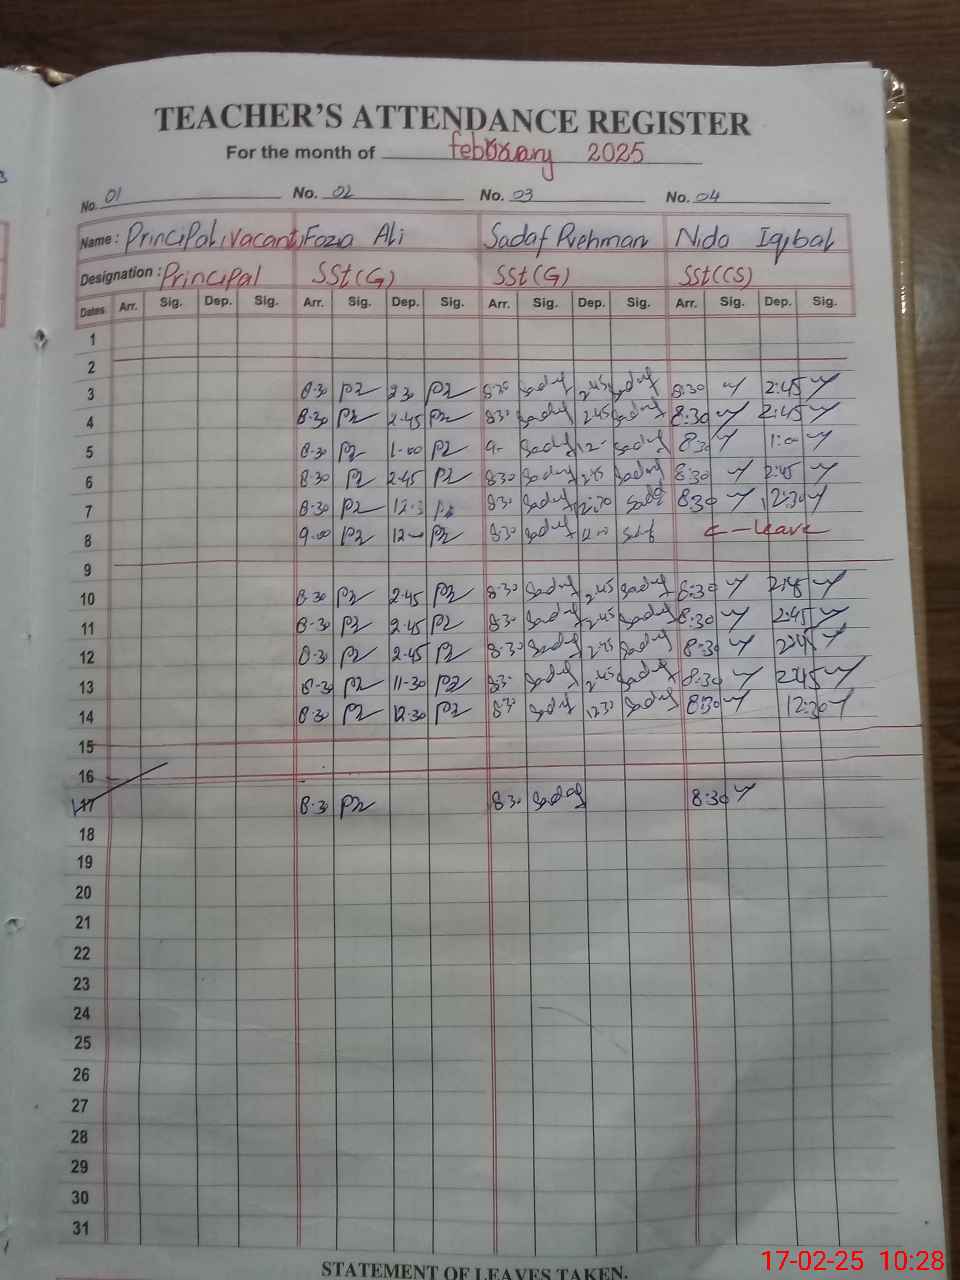 TEACHER'S ATTENDANCE REGISTER
For the month of february 2025
No. 01 No. 02 No. 03 No. 04
Name : Principal, Vacant, Fozia Ali Sadaf Rehman Nida Iqbal
Designation : Principal SSt(G) SSt(G) SSt(CS)
Dates Arr. Sig. Dep. Sig. Arr. Sig. Dep. Sig. Arr. Sig. Dep. Sig. Arr. Sig. Dep. Sig.
1
2
3 8.30 2.30 8.30 Sadaf 2.45 Sadaf 8:30 2:45
4 8.30 2.45 8.30 Sadaf 2.45 Sadaf 8:30 2:45
5 8.30 1.00 9- Sadaf 12- Sadaf 8:30 1:00
6 8.30 2.45 8.30 Sadaf 2.45 Sadaf 8:30 2:45
7 8.30 12.3 8.30 Sadaf 12:30 Sadaf 8:30 12:30
8 9.00 12 8.30 Sadaf Sadaf C-leave
9
10 8.30 2.45 8.30 Sadaf 2.45 Sadaf 8:30 2:45
11 8.30 2.45 8.30 Sadaf 2.45 Sadaf 8:30 2:45
12 8.30 2.45 8.30 Sadaf 2.45 Sadaf 8:30 2:45
13 8.30 11.30 8.3- Sadaf 2.45 Sadaf 8:30 2:45
14 8.30 12.30 8.30 Sadaf 12.30 Sadaf 8:30 12:30
15
16
17 8.30 8.30 Sadaf 8:30
18
19
20
21
22
23
24
25
26
27
28
29
30
31
STATEMENT OF LEAVES TAKEN.
17-02-25 10:28